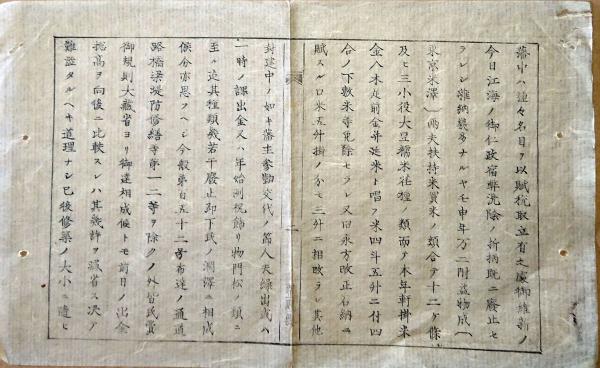 藩中ハ種々名目ヲ以賦税取立有之處御維新ノ
今日江海ノ御仁政宿弊洗除ノ折柄既ニ廃止セ
ラレシ雑納幾多ナルヤモ申年万二附盛物成
米京米澤両夫扶持米賃米ノ類合テ十二ヶ條
及ヒ三小役大豆糯米荏種ノ類而テ本年軒掛米
金八木丸前金斗延米ト唱ヲ米四斗五升ニ付四
合ノ下敷米等免除セラレ又旧永方改正石納ニ
賦スル口米五升掛ノ分モ三升ニ相改ラレ其他
封建中ノ如キ藩主参勤交代ノ節人夫繰出或ハ
一時ノ課出金又ハ年始測祝飾リ物門松ノ類ニ
至ル迄其種類幾若干廃止即下民ノ潤澤ニ相成
候分亦思フヘシ今般第百五十二号布達ノ通道
路橋梁堤防修繕等第一二等ヲ除クノ外皆民費
御規則大蔵省ヨリ御達相成候トモ前日ノ出金
揔高ヲ向後ニ比較スレハ其幾許ヲ減省ス決テ
難澁タルヘキ道理ナシ已後修築ノ大小ニ随ヒ